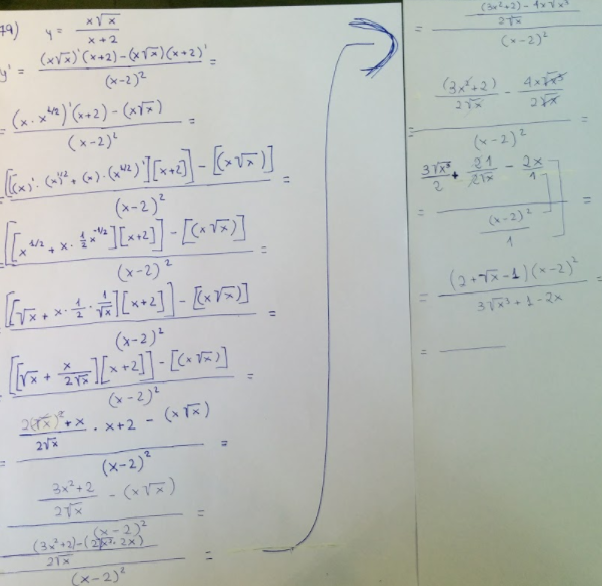 79) y = x√x / x+2
y' = (x√x)'(x+2) - (x√x)(x+2)' / (x-2)² =
= (x · x^1/2)'(x+2) - (x√x) / (x-2)² =
[[(x)' · (x)^1/2 + (x) · (x^1/2)'][x+2]] - [(x√x)] / (x-2)² =
[[x^1/2 + x · 1/2 x^-1/2][x+2]] - [(x√x)] / (x-2)² =
[[√x + x · 1/2 · 1/√x][x+2]] - [(x√x)] / (x-2)² =
[[√x + x/2√x][x+2]] - [(x√x)] / (x-2)² =
= 2(√x)² + x / 2√x · x+2 - (x√x) / (x-2)² =
3x²+2 / 2√x - (x√x) / (x-2)² =
(x-2)² =
= (3x²+2) - 4x√x³ / 2√x / (x-2)²
= (3x²+2) / 2√x - 4x√x³ / 2√x / (x-2)² =
= 3√x³ / 2 + 21 / 2√x - 2x / 1 / (x-2)² / 1 =
= (2+√x-1)(x-2)² / 3√x³+1-2x =
=